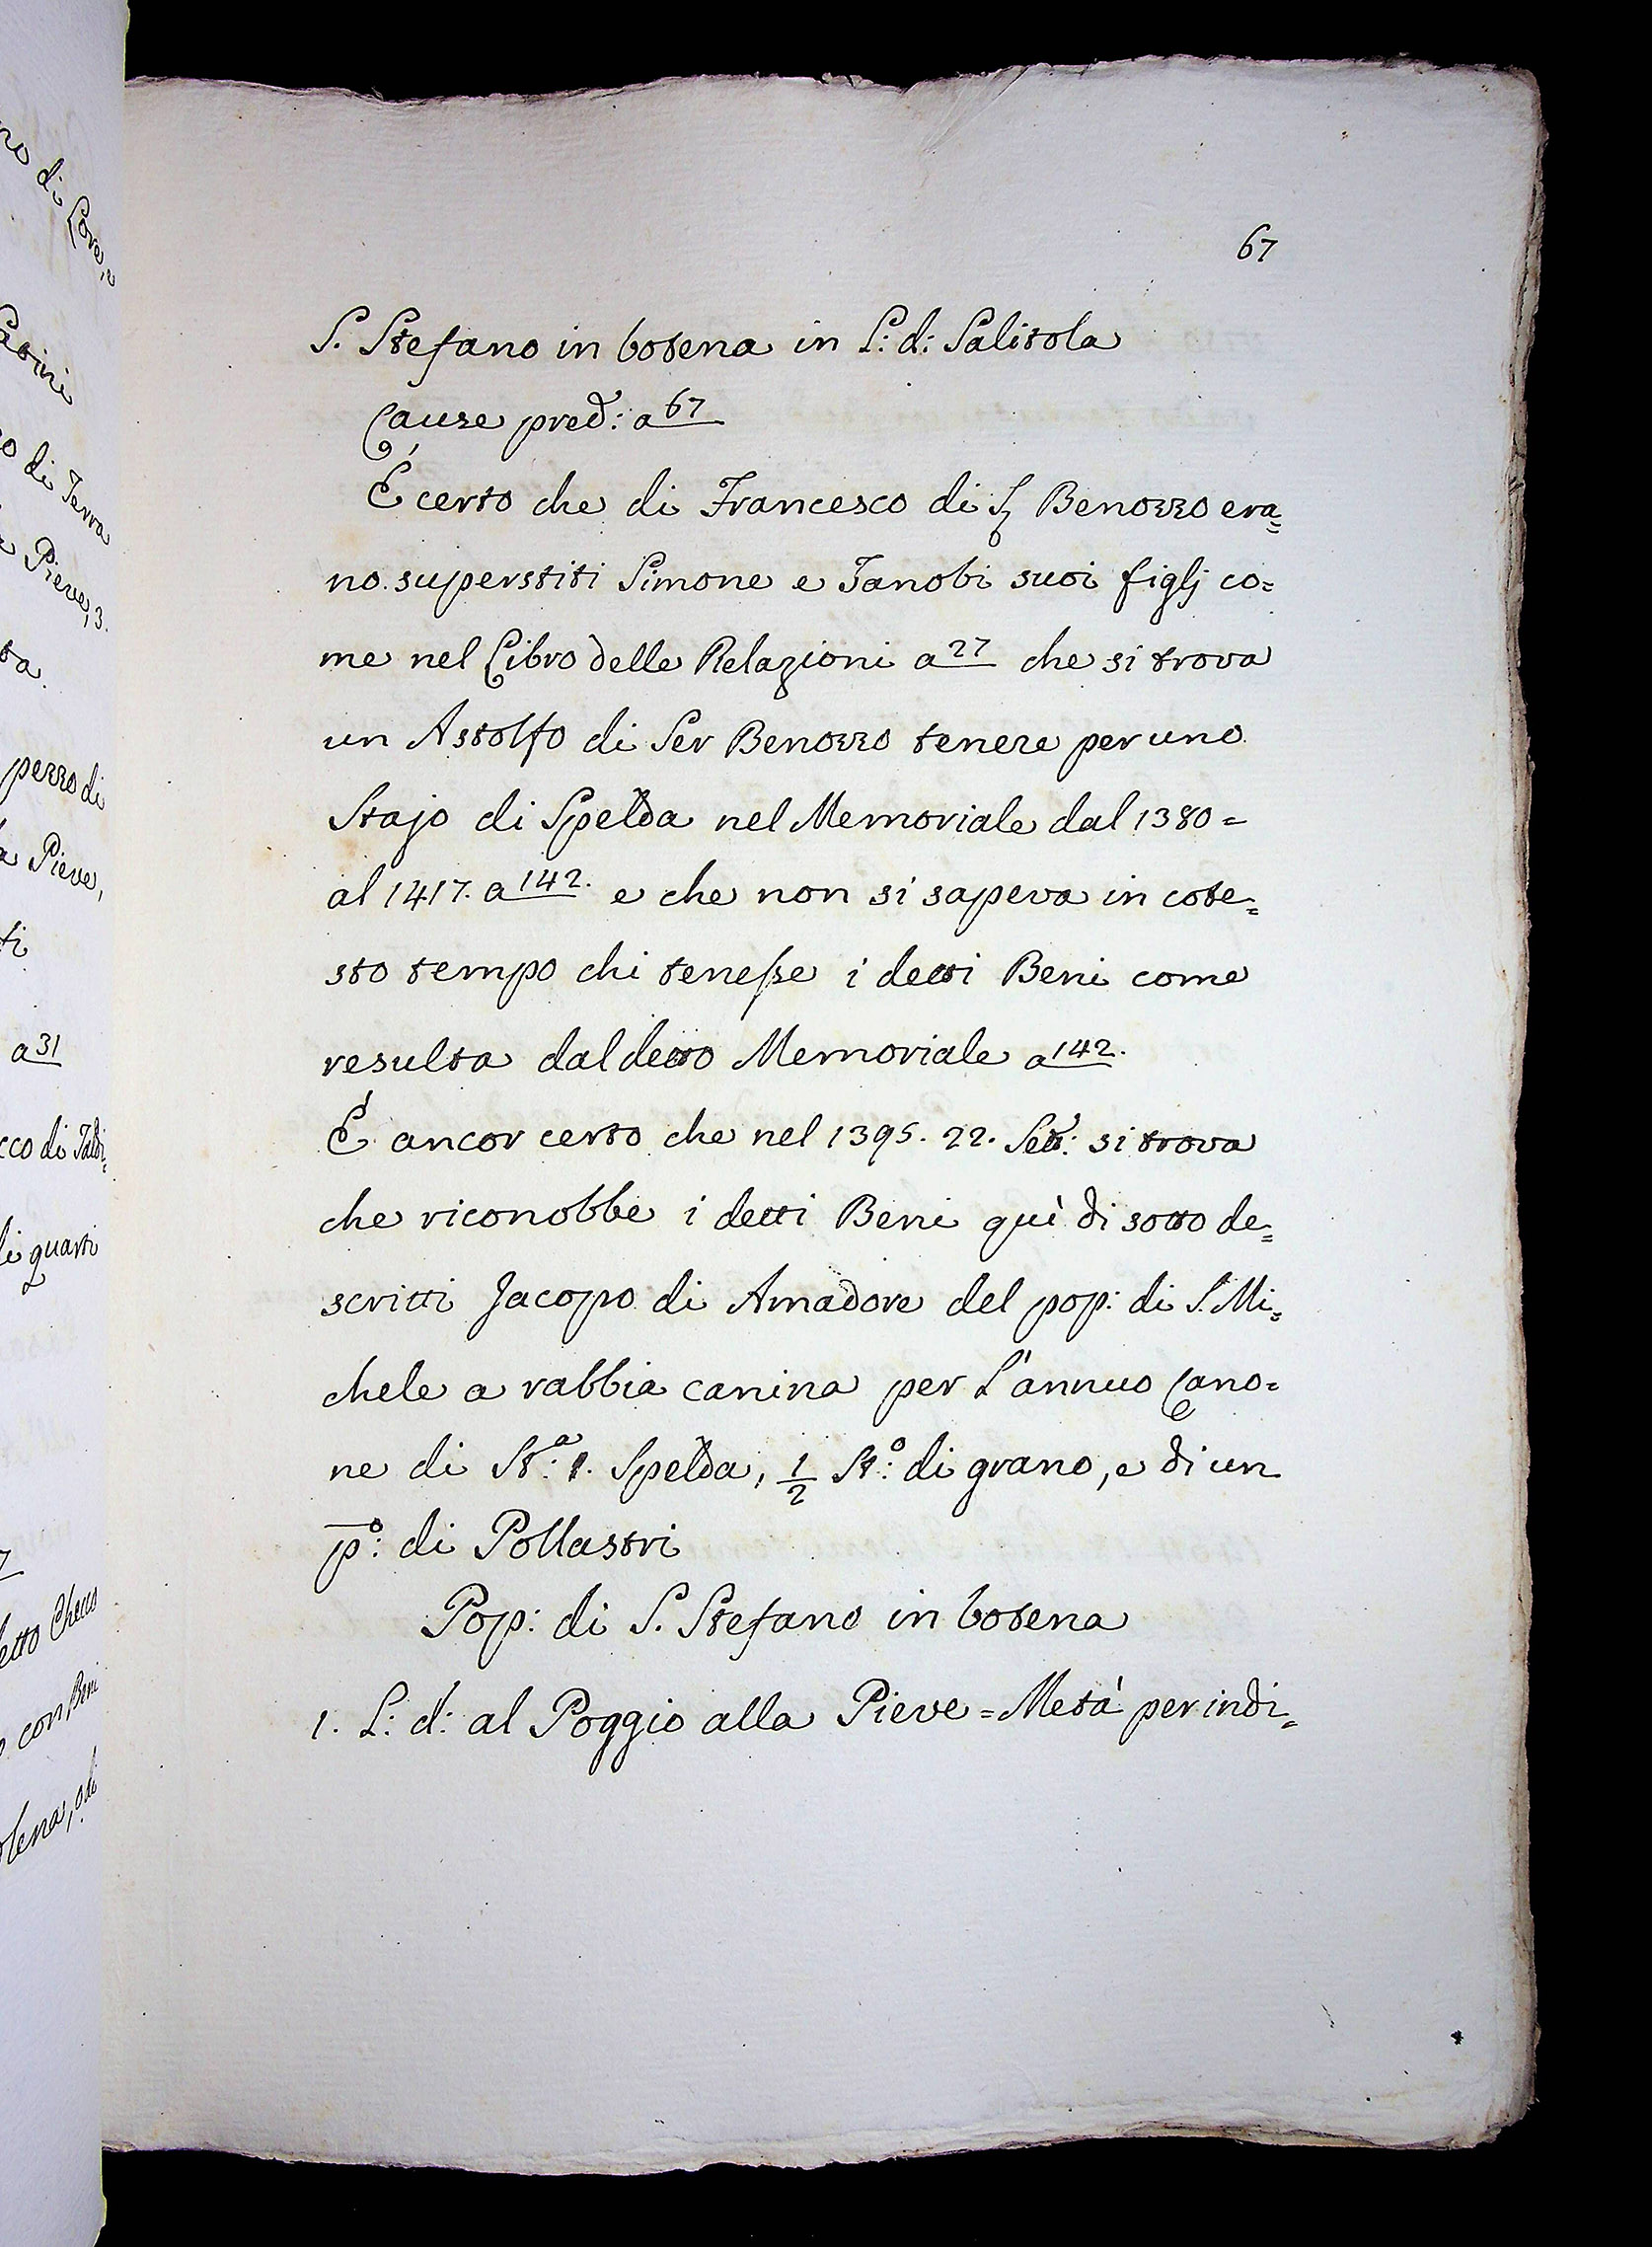 no di Lore, e
di Terra
Pieve, 3.
pezzo di
a Pieve,
ti
a 31
cco di Taldi=
di quarti
detto Checo
confini
67
S. Stefano in botena in L: d: Salitola
Cause pred: a 67
È certo che di Francesco di S. Benozzo era=
no superstiti Simone e Zanobi suoi figlj co=
me nel Libro delle Relazioni a 27 che si trova
un Astolfo di Ser Benozzo tenere per uno
Stajo di Spelda nel Memoriale dal 1380=
al 1417. a 142. e che non si sapeva in cote=
sto tempo chi tenesse i detti Beni come
resulta dal detto Memoriale a 142.
È ancor certo che nel 1395. 22. Sett: si trova
che riconobbe i detti Beni quì di sotto de=
scritti Jacopo di Amadore del pop: di S. Mi=
chele a rabbia canina per L'annuo Cano=
ne di St:ª 1. Spelda, 1/2 St:º di grano, e di un
p:º di Pollastri
Pop: di S. Stefano in botena
1. L: d: al Poggio alla Pieve = Metà per indi=